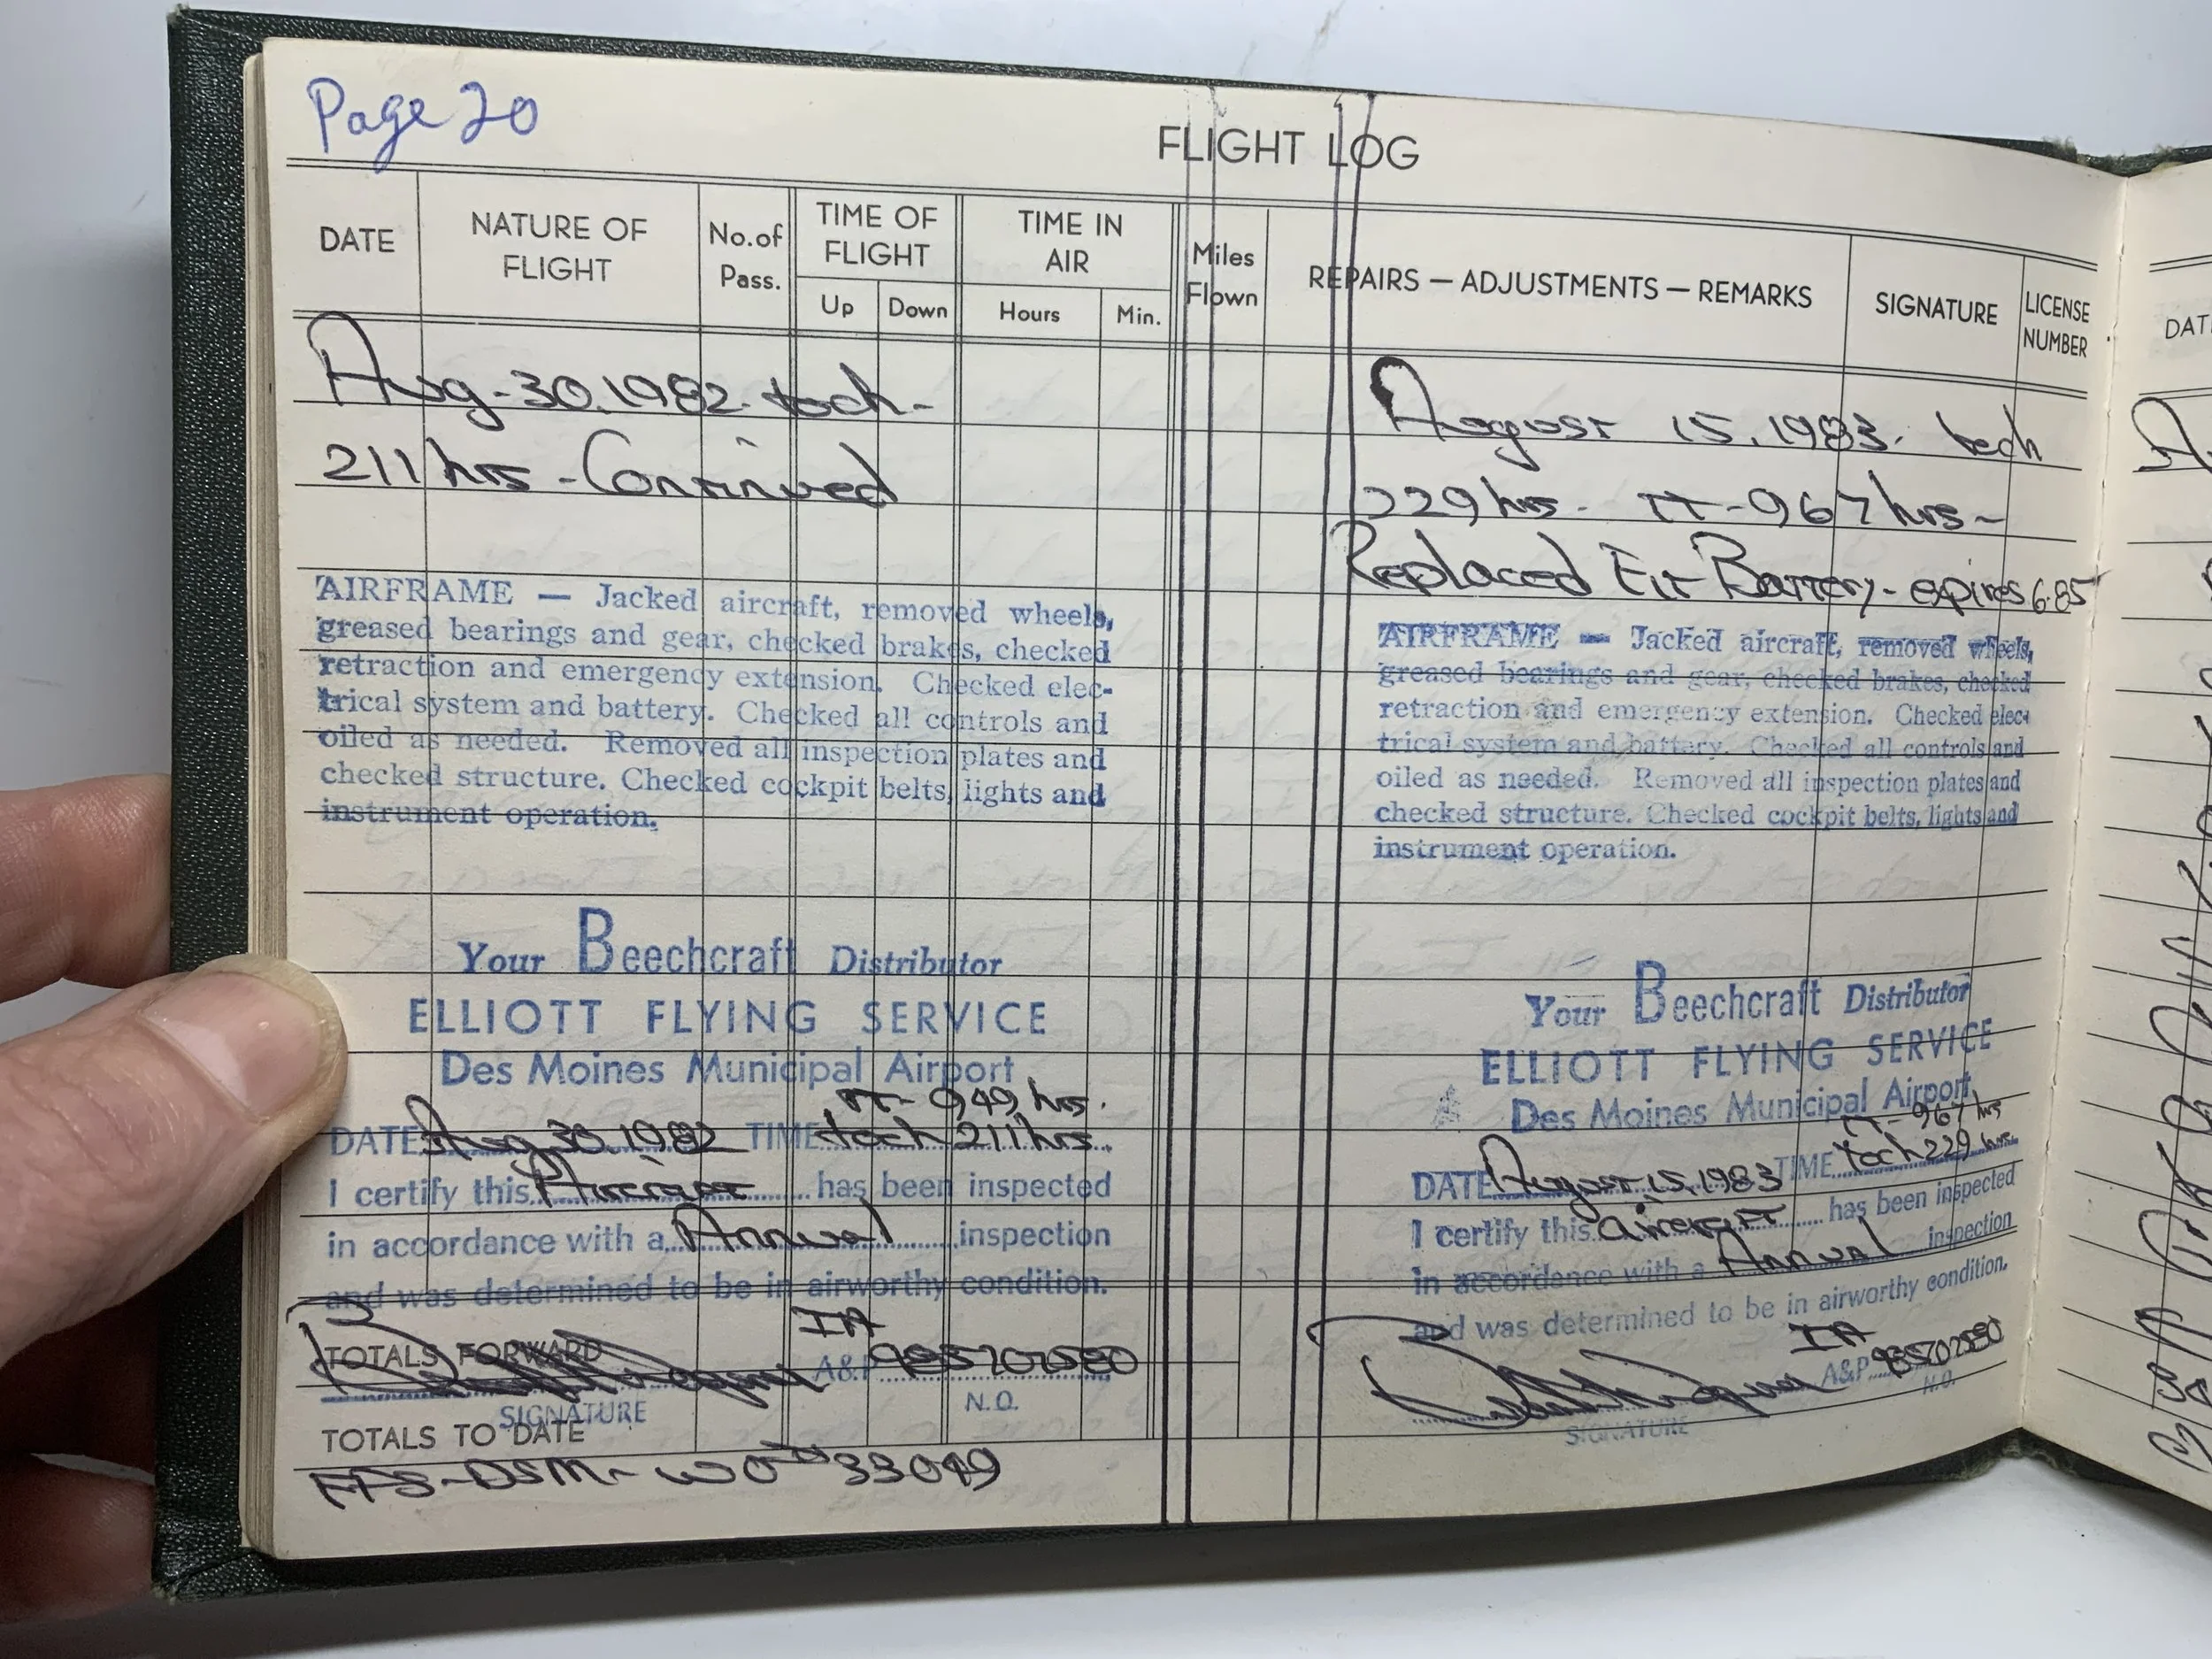 Page 20
FLIGHT LOG
DATE
NATURE OF
FLIGHT
No.of
Pass.
TIME OF
FLIGHT
Up
Down
TIME IN
AIR
Hours
Min.
Miles
Flown
REPAIRS — ADJUSTMENTS — REMARKS
SIGNATURE
LICENSE
NUMBER
Aug-30.1982. tach-
211 hrs - Continued
AIRFRAME — Jacked aircraft, removed wheels,
greased bearings and gear, checked brakes, checked
retraction and emergency extension. Checked elec-
trical system and battery. Checked all controls and
oiled as needed. Removed all inspection plates and
checked structure. Checked cockpit belts, lights and
instrument operation.
Your Beechcraft Distributor
ELLIOTT FLYING SERVICE
Des Moines Municipal Airport
TT- 949 hrs.
DATE Aug 30.1982 TIME tach 211 hrs.
I certify this Aircraft has been inspected
in accordance with a Annual inspection
and was determined to be in airworthy condition.
TOTALS FORWARD
IA
A&P
SIGNATURE
N.O.
TOTALS TO DATE
EFS-DSM- WO# 33049
August 15.1983. tach
229 hrs. TT-967 hrs-
Replaced Elt Battery-expires 6-85
AIRFRAME — Jacked aircraft, removed wheels,
greased bearings and gear, checked brakes, checked
retraction and emergency extension. Checked elec-
trical system and battery. Checked all controls and
oiled as needed. Removed all inspection plates and
checked structure. Checked cockpit belts, lights and
instrument operation.
Your Beechcraft Distributor
ELLIOTT FLYING SERVICE
Des Moines Municipal Airport
TT-967 hrs
DATE August 15.1983 TIME tach 229 hrs.
I certify this aircraft has been inspected
in accordance with a Annual inspection
and was determined to be in airworthy condition.
IA
A&P
N.O.
SIGNATURE